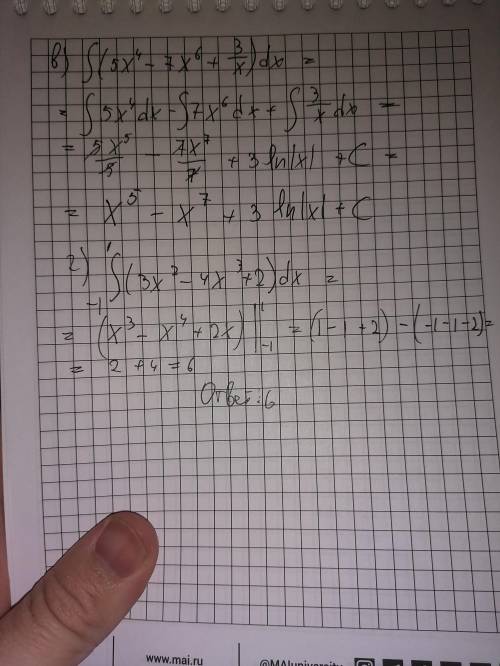 в) ∫(5x⁴ - 7x⁶ + 3/x)dx =
= ∫5x⁴dx - ∫7x⁶dx + ∫3/x dx =
= 5x⁵/5 - 7x⁷/7 + 3 ln|x| + C =
= x⁵ - x⁷ + 3 ln|x| + C
г) ∫₋₁¹(3x² - 4x³ + 2)dx =
= (x³ - x⁴ + 2x)|₋₁¹ = (1 - 1 + 2) - (-1 - 1 - 2) =
= 2 + 4 = 6
Ответ: 6
www.mai.ru
@MAIuniversity